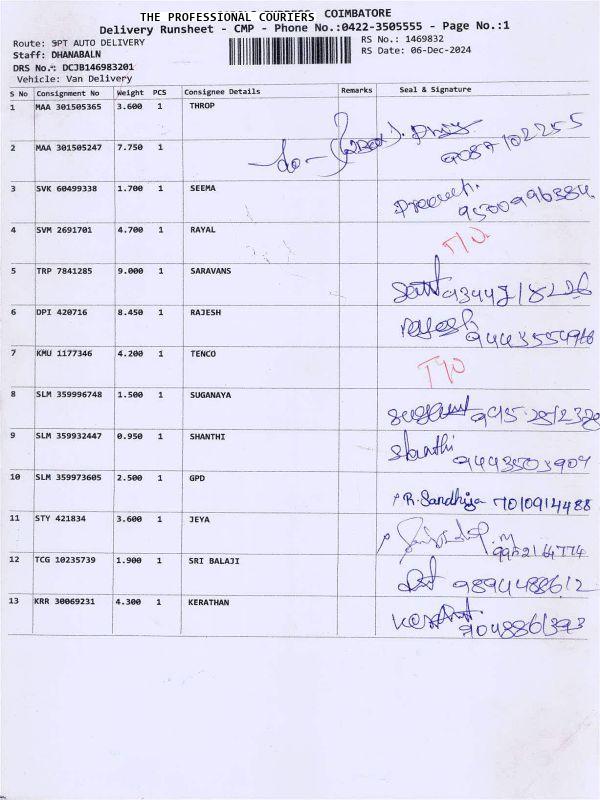 THE PROFESSIONAL COURIERS COIMBATORE
Delivery Runsheet - CMP - Phone No.:0422-3505555 - Page No.:1
Route: 9PT AUTO DELIVERY
RS No.: 1469832
Staff: DHANABALN
RS Date: 06-Dec-2024
DRS No.: DCJB146983201
Vehicle: Van Delivery
S No Consignment No Weight PCS Consignee Details Remarks Seal & Signature
1 MAA 301505365 3.600 1 THROP 9087102255
2 MAA 301505247 7.750 1 -do-
3 SVK 60499338 1.700 1 SEEMA
4 SVM 2691701 4.700 1 RAYAL T/O
5 TRP 7841285 9.000 1 SARAVANS
6 DPI 420716 8.450 1 RAJESH rajesh
7 KMU 1177346 4.200 1 TENCO T/O
8 SLM 359996748 1.500 1 SUGANAYA
9 SLM 359932447 0.950 1 SHANTHI Shanthi 9443503907
10 SLM 359973605 2.500 1 GPD R. Sandhiya 7010914488
11 STY 421834 3.600 1 JEYA
12 TCG 10235739 1.900 1 SRI BALAJI 9894488612
13 KRR 30069231 4.300 1 KERATHAN 9048861393